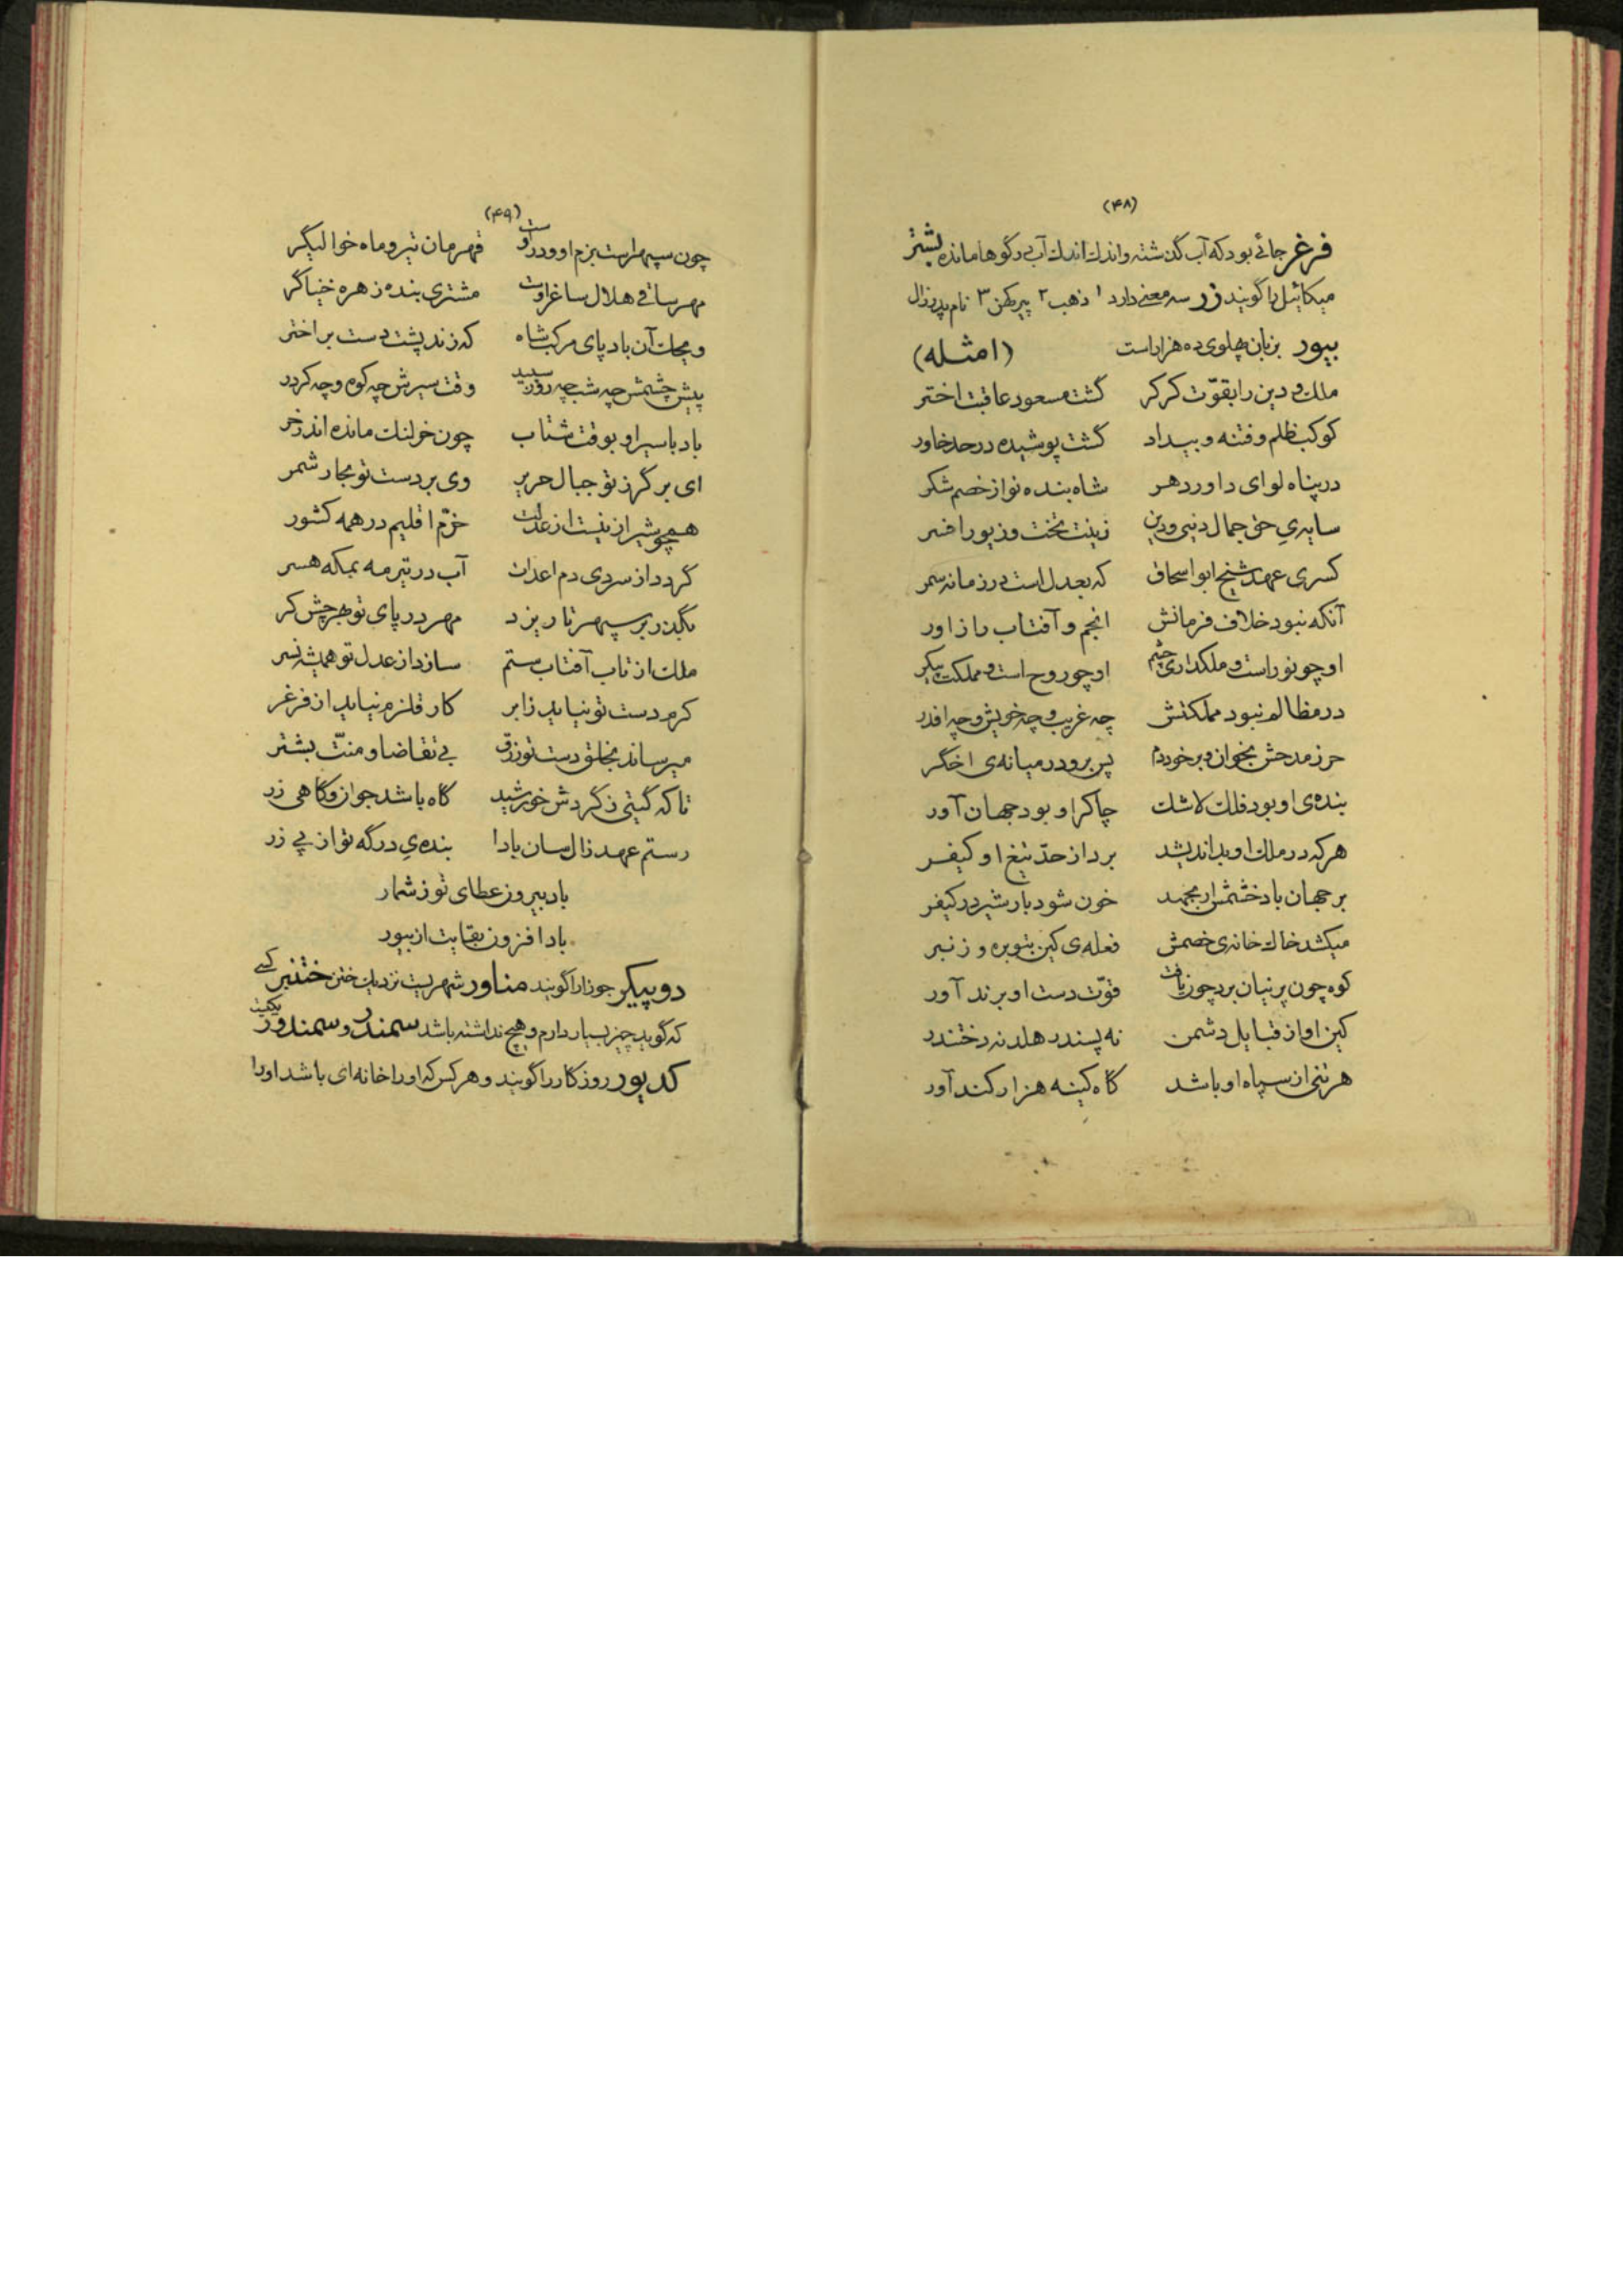 (۴۸)
فرغر جائی بود که آب گذشته و اندک اندک آب در گوها مانده بشتر
میکائیل را گویند زر سه معنی دارد ۱ ذهب ۲ پیر کهن ۳ نام پدر زال
بیور بزبان پهلوی ده هزار است (امثله)
ملک و دین را بقوّت کرکر گشت مسعود عاقبت اختر
کوکب ظلم و فتنه و بیداد گشت پوشیده در حد خاور
در پناه لوای داور دهر شاه بنده نواز خصم شکر
سایه‌ی حق جمال دنیی و دین زینت تخت و زیور افسر
کسری عهد شیخ ابو اسحاق که بعدل است در زمانه سمر
آنکه نبود خلاف فرمانش انجم و آفتاب را زاور
او چو نور است و ملکداری چشم او چو روح است و مملکت پیکر
در مظالم نبود مملکتش چه غریب و چه خویش و چه افدر
حرز مدحش بخوان و بر خود دم پس برو در میانه‌ی اخگر
بنده‌ی او بود فلک لاشک چاکر او بود جهان آور
هر که در ملک او بد اندیشد برد از حدّ تیغ او کیفر
بر جهان باد خشمش ار بجهد خون شود بار شیر در کیفر
میکشد خاک خانه‌ی خصمش فعله‌ی کین بتوبره و زنبر
کوه چون پرنیان برد چون یافت قوّت دست او برند آور
کین او از قبایل دشمن نه پسندر هلد نه دختندر
هر تنی از سپاه او باشد گاه کینه هزار کند آور
(۴۹)
چون سپهر است بزم او و در اوست قهرمان تیر و ماه خوالیگر
مهر ساقی هلال ساغر اوست مشتری بنده زهره خنیاگر
ویحک آن بادپای مرکب شاه که زند پشت دست بر اختر
پیش چشمش چه شب چه روز سپید وقت سیرش چه کوه و چه کردر
باد با سیر او بوقت شتاب چون خر لنگ مانده اندر خر
ای بر گرز تو جبال حریر وی بر دست تو بحار شمر
همچو شیراز نیست از عدلت خرّم اقلیم در همه کشور
گردد از سردی دم اعدات آب در تیر مه بمکه هسر
بگذر بر سپهر تا ریزد مهر در پای تو بهر چش کر
ملک از تاب آفتاب ستم سازد از عدل تو همیشه نسر
کرم دست تو نیاید ز ابر کار قلزم نیاید از فرغر
میرساند بخلق دست تو رزق بی تقاضا و منّت بشتر
تا که گیتی ز گردش خورشید گاه باشد جوان و گاهی زر
رستم عهد زال سان بادا بنده‌ی درگه تو از پی زر
باد بیرون عطای تو ز شمار
بادا فزون بقایت از بیور
دوپیکر جوزا را گویند مناور شهریست نزدیک ختن ختنبر کسی
که گوید چیز بسیار دارم و هیچ نداشته باشد سمندر و سمندور
کدیور روزگار را گویند و هر کس که او را خانه‌ای باشد او را